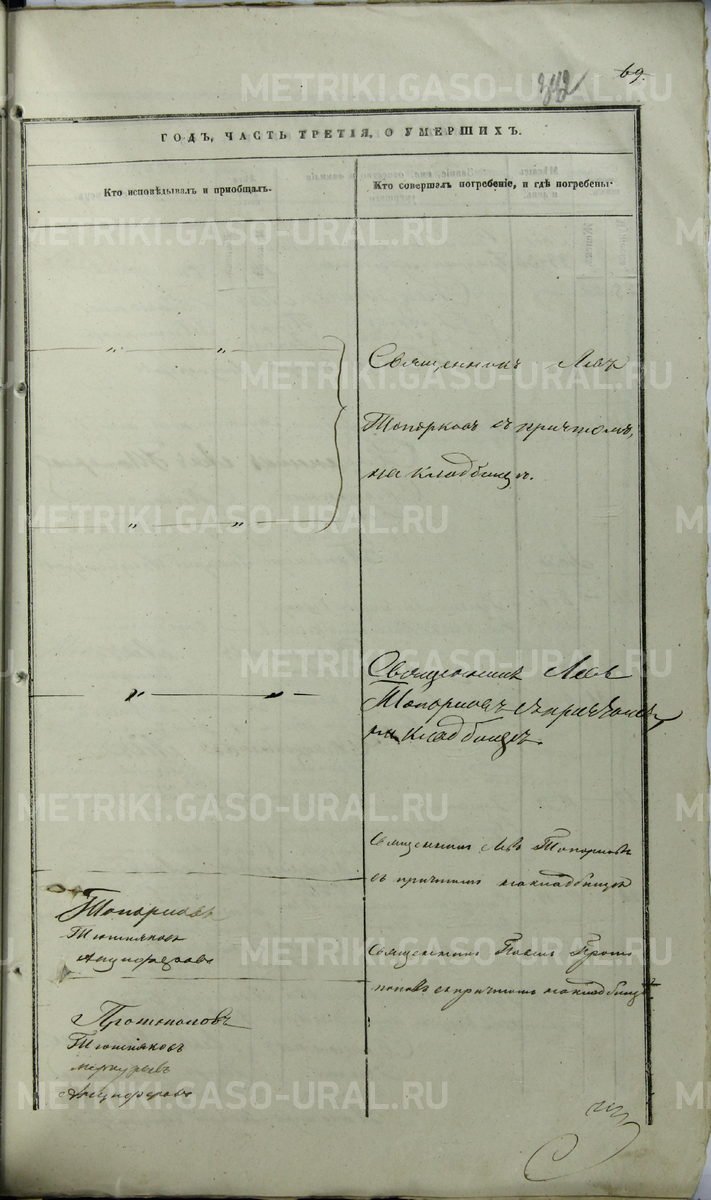 69.
342
ГОДЪ, ЧАСТЬ ТРЕТІЯ, О УМЕРШИХЪ.
Кто исповѣдывалъ и приобщалъ.
Кто совершалъ погребеніе, и гдѣ погребены.
" "
Священникъ Левъ
Топорковъ съ причтомъ,
на кладбищѣ.
" "
Священникъ Левъ
" "
Топорковъ съ причтомъ,
на кладбищѣ.
Священникъ Левъ Топорковъ
съ причтомъ на кладбищѣ
Топорковъ
Тюшняковъ
Анциферовъ
Священникъ Павелъ Прото
поповъ съ причтомъ на кладбищѣ
Протопоповъ
Тюшняковъ
Меркурьевъ
Анциферовъ
METRIKI.GASO-URAL.RU